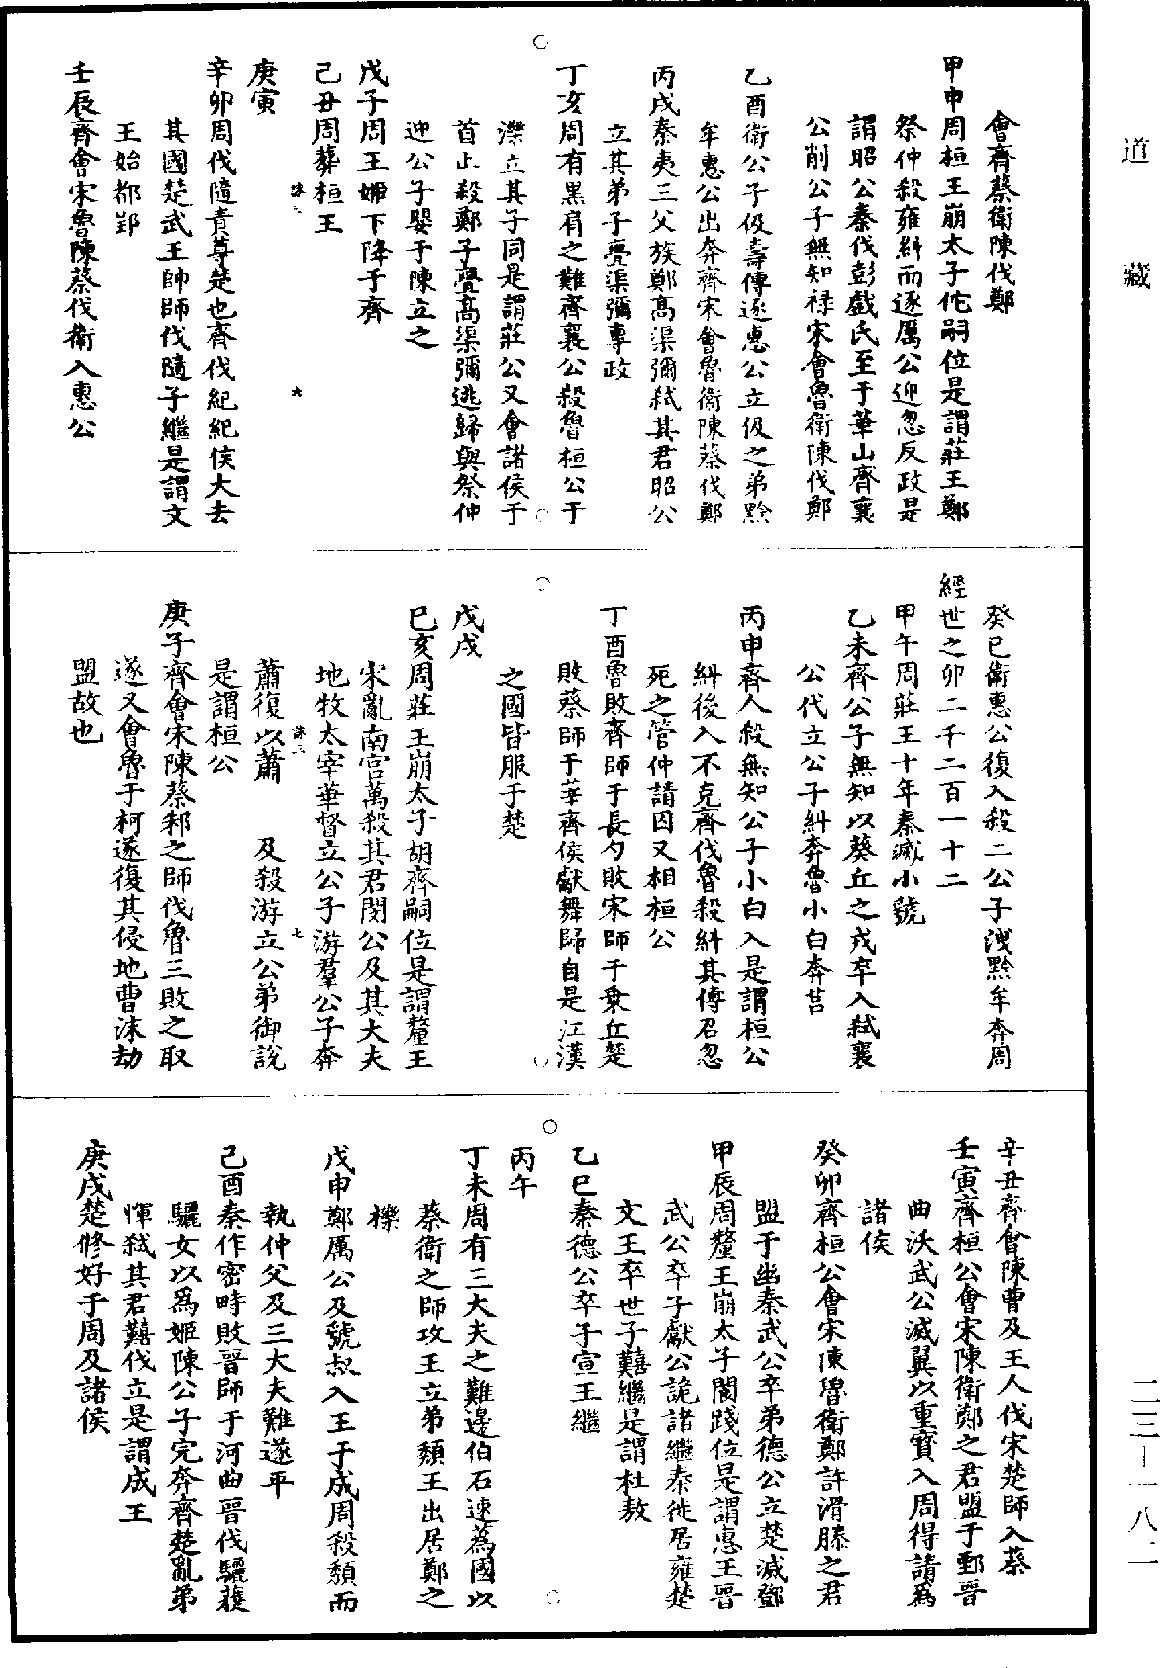 道藏
會齊蔡衛陳伐鄭
甲申周桓王崩太子佗嗣位是謂莊王鄭
祭仲殺雍糾而逐厲公迎忽反政是
謂昭公秦伐彭戲氏至于華山齊襄
公削公子無知祿宋會魯衛陳伐鄭
乙酉衛公子伋壽傳逐惠公立伋之弟黔
牟惠公出奔齊宋會魯衛陳蔡伐鄭
丙戌秦夷三父族鄭高渠彌弒其君昭公
立其弟子亹渠彌專政
丁亥周有黑肩之難齊襄公殺魯桓公于
濼立其子同是謂莊公又會諸侯于
首止殺鄭子亹高渠彌逃歸與祭仲
迎公子嬰于陳立之
戊子周王姬下降于齊
己丑周葬桓王
六
庚寅
辛卯周伐隨責尊楚也齊伐紀紀侯大去
其國楚武王帥師伐隨子繼是謂文
王始都郢
壬辰齊會宋魯陳蔡伐衛入惠公
癸巳衛惠公復入殺二公子洩黔牟奔周
經世之卯二千二百一十二
甲午周莊王十年秦滅小虢
乙未齊公子無知以葵丘之戎卒入弒襄
公代立公子糾奔魯小白奔莒
丙申齊人殺無知公子小白入是謂桓公
糾後入不克齊伐魯殺糾其傅召忽
死之管仲請囚又相桓公
丁酉魯敗齊師于長勺敗宋師于乘丘楚
敗蔡師于莘齊侯獻舞歸自是江漢
之國皆服于楚
戊戌
己亥周莊王崩太子胡齊嗣位是謂釐王
宋亂南宮萬殺其君閔公及其大夫
地牧太宰華督立公子游羣公子奔
七
蕭復以蕭　及殺游立公弟御說
是謂桓公
庚子齊會宋陳蔡邾之師伐魯三敗之取
遂又會魯于柯遂復其侵地曹沫劫
盟故也
辛丑齊會陳曹及王人伐宋楚師入蔡
壬寅齊桓公會宋陳衛鄭之君盟于鄄晉
曲沃武公滅翼以重寶入周得請為
諸侯
癸卯齊桓公會宋陳魯衛鄭許滑滕之君
盟于幽秦武公卒弟德公立楚滅鄧
甲辰周釐王崩太子閬踐位是謂惠王晉
武公卒子獻公詭諸繼秦徙居雍楚
文王卒世子囏繼是謂杜敖
乙巳秦德公卒子宣王繼
丙午
丁未周有三大夫之難邊伯石速蒍國以
蔡衛之師攻王立弟頹王出居鄭之
櫟
戊申鄭厲公及虢叔入王于成周殺頹而
執仲父及三大夫難遂平
己酉秦作密畤敗晉師于河曲晉伐驪獲
驪女以為姬陳公子完奔齊楚亂弟
惲弒其君囏伐立是謂成王
庚戌楚修好于周及諸侯
二三—一八二